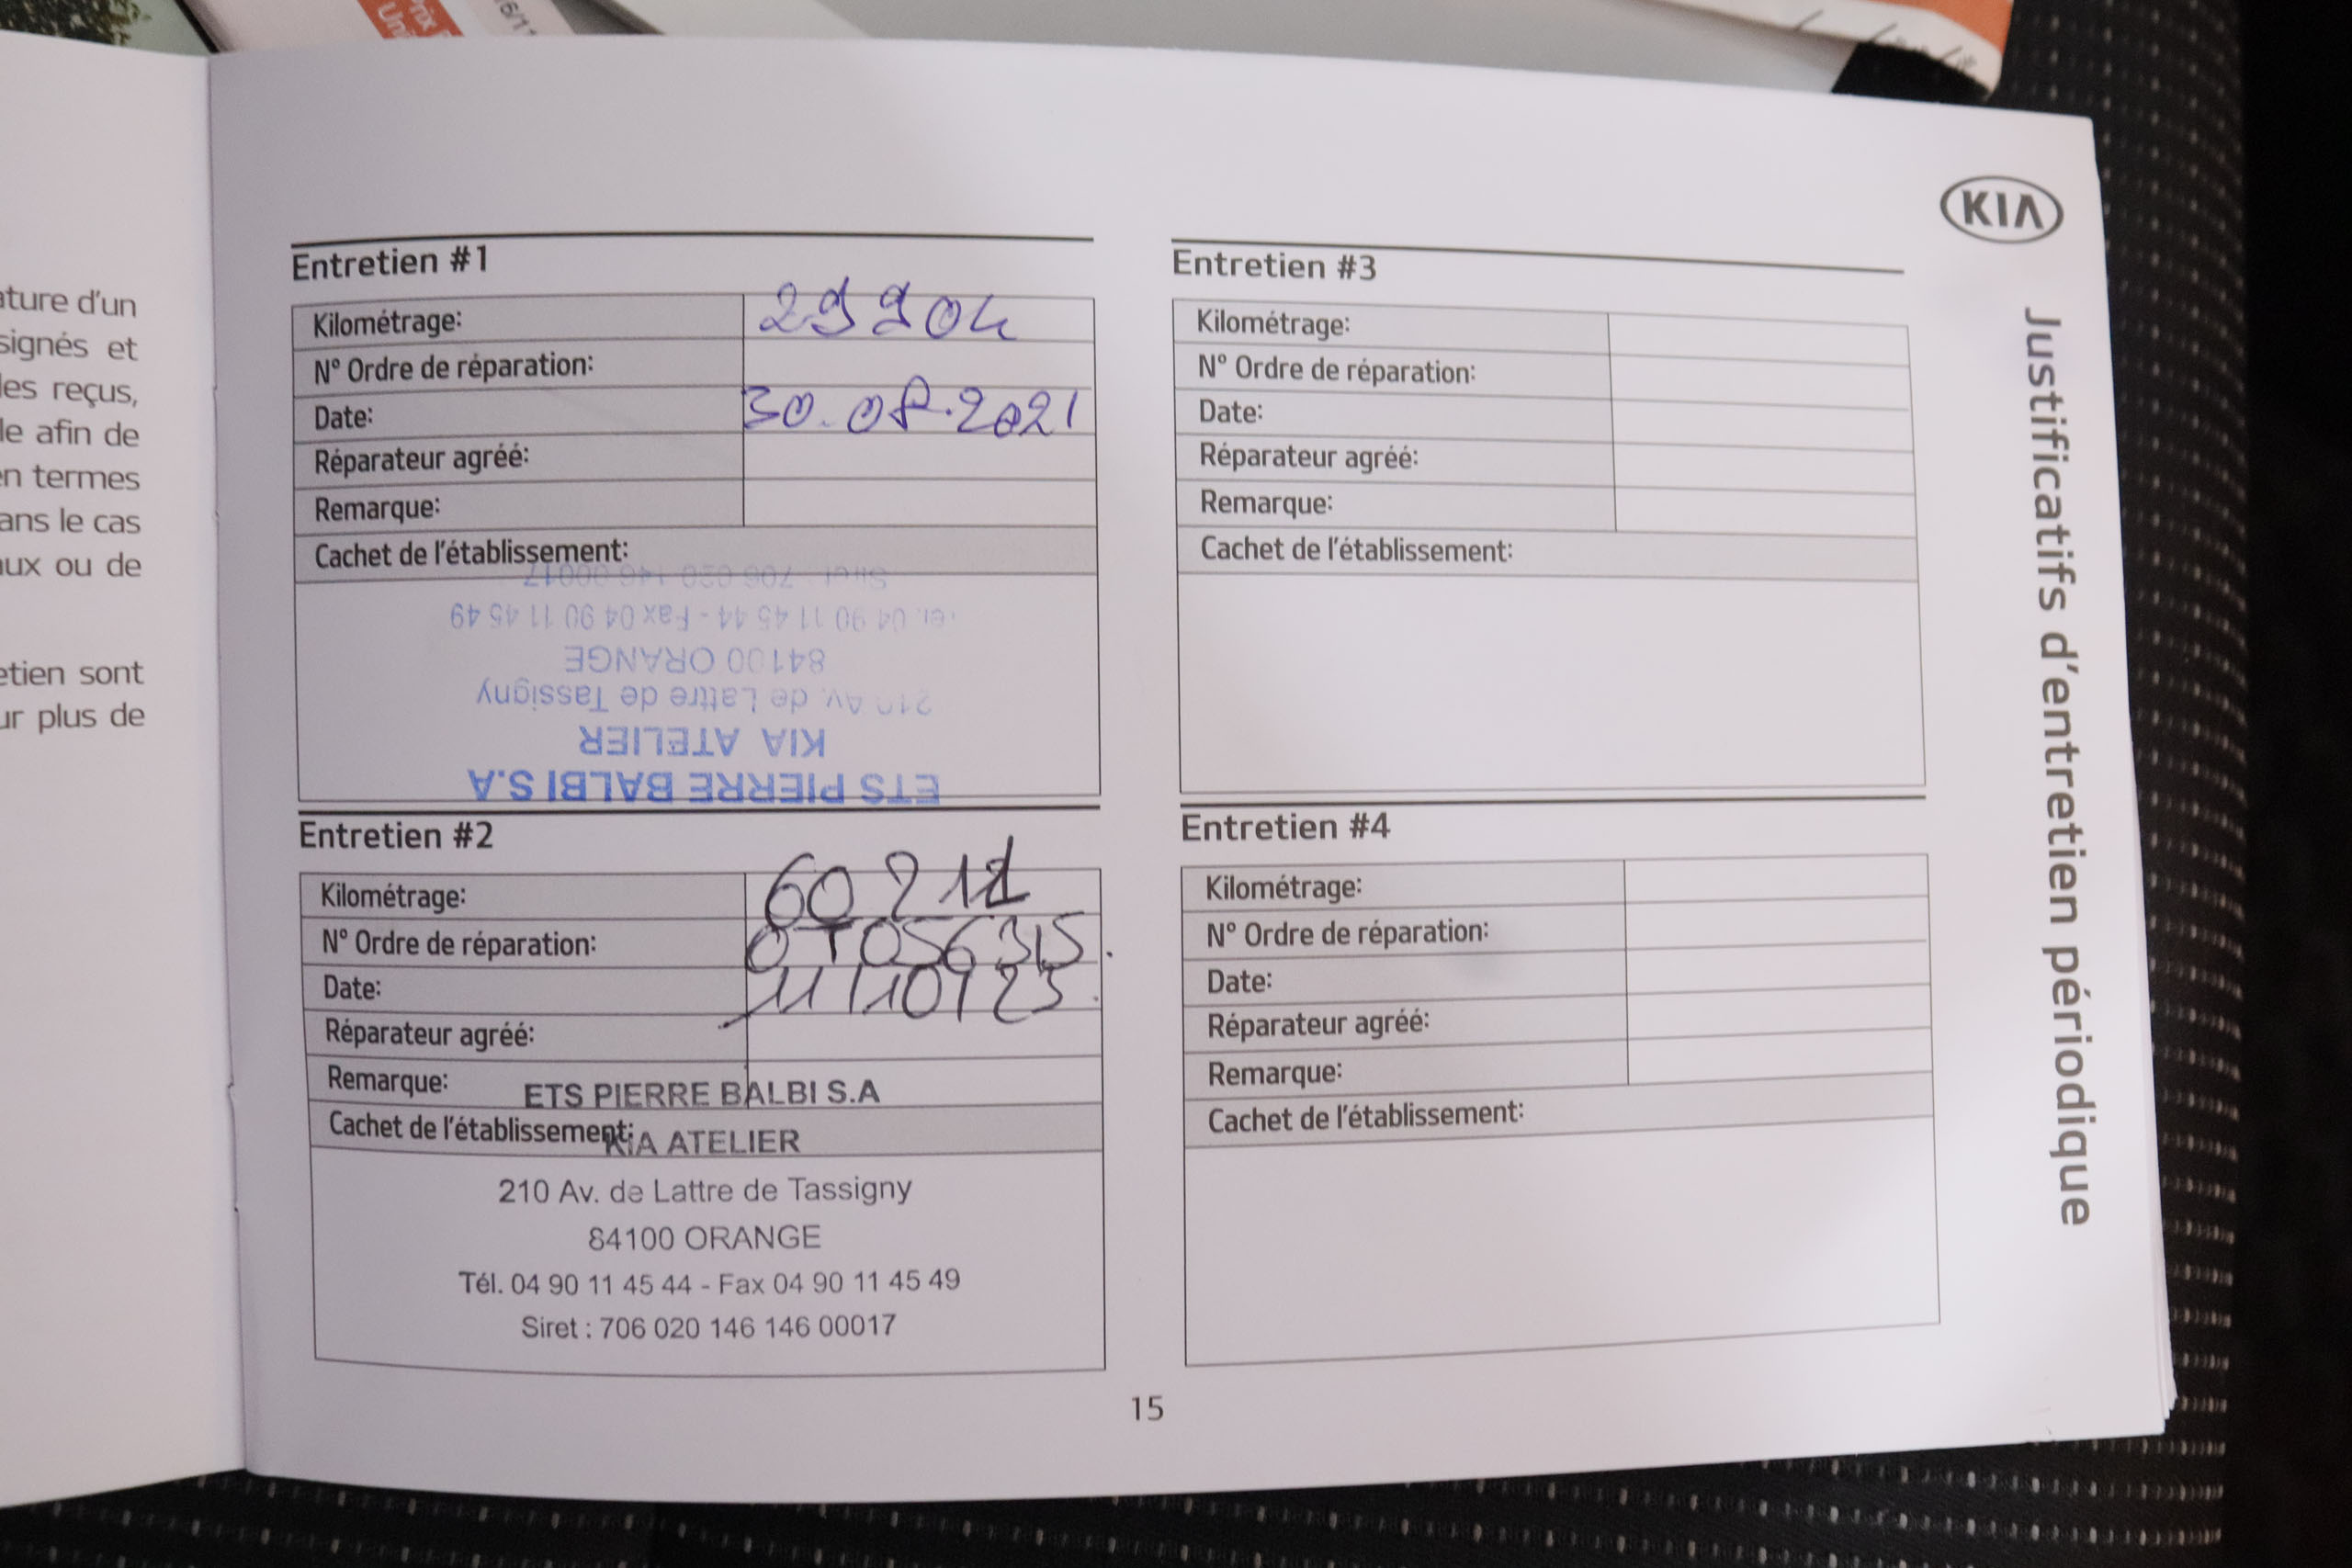 ature d'un
signés et
les reçus,
le afin de
en termes
ans le cas
aux ou de
etien sont
ur plus de
KIA
Justificatifs d'entretien périodique
Entretien #1
Kilométrage: 29904
N° Ordre de réparation:
Date: 30.08.2021
Réparateur agréé:
Remarque:
Cachet de l'établissement:
ETS PIERRE BALBI S.A
KIA ATELIER
210 Av. de Lattre de Tassigny
84100 ORANGE
Tél. 04 90 11 45 44 - Fax 04 90 11 45 49
Siret : 706 020 146 00017
Entretien #2
Kilométrage: 60211
N° Ordre de réparation: OT056315.
Date: 11/10/23.
Réparateur agréé:
Remarque:
Cachet de l'établissement:
ETS PIERRE BALBI S.A
KIA ATELIER
210 Av. de Lattre de Tassigny
84100 ORANGE
Tél. 04 90 11 45 44 - Fax 04 90 11 45 49
Siret : 706 020 146 146 00017
Entretien #3
Kilométrage:
N° Ordre de réparation:
Date:
Réparateur agréé:
Remarque:
Cachet de l'établissement:
Entretien #4
Kilométrage:
N° Ordre de réparation:
Date:
Réparateur agréé:
Remarque:
Cachet de l'établissement:
15